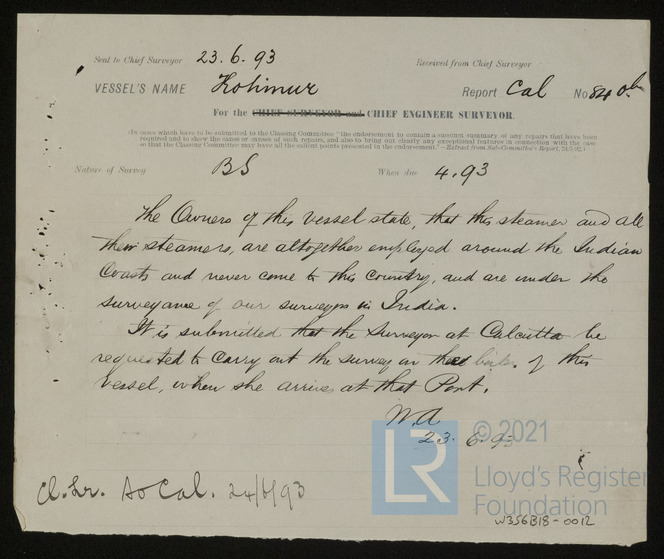 Sent to Chief Surveyor 23.6.93 Received from Chief Surveyor
VESSEL'S NAME Kohinur Report Cal No 840
For the CHIEF SURVEYOR and CHIEF ENGINEER SURVEYOR.
(In cases which have to be submitted to the Classing Committee "the endorsement to contain a succinct summary of any repairs that have been
required and to show the cause or causes of such repairs, and also to bring out clearly any exceptional features in connection with the case
so that the Classing Committee may have all the salient points presented in the endorsement."—Extract from Sub-Committee's Report
Nature of Survey BS When due 4.93
The Owners of this vessel state, that this steamer and all
their steamers, are altogether employed around the Indian
Coasts and never come to this country, and are under the
surveyance of our surveyors in India.
It is submitted that the Surveyor at Calcutta be
requested to carry out the survey on the boiler of this
vessel, when she arrives at that Port.
W.A
23.6.93
Cl. Lr. to Cal. 24/6/93
© 2021
LR
Lloyd's Register
Foundation
W356B18-0012